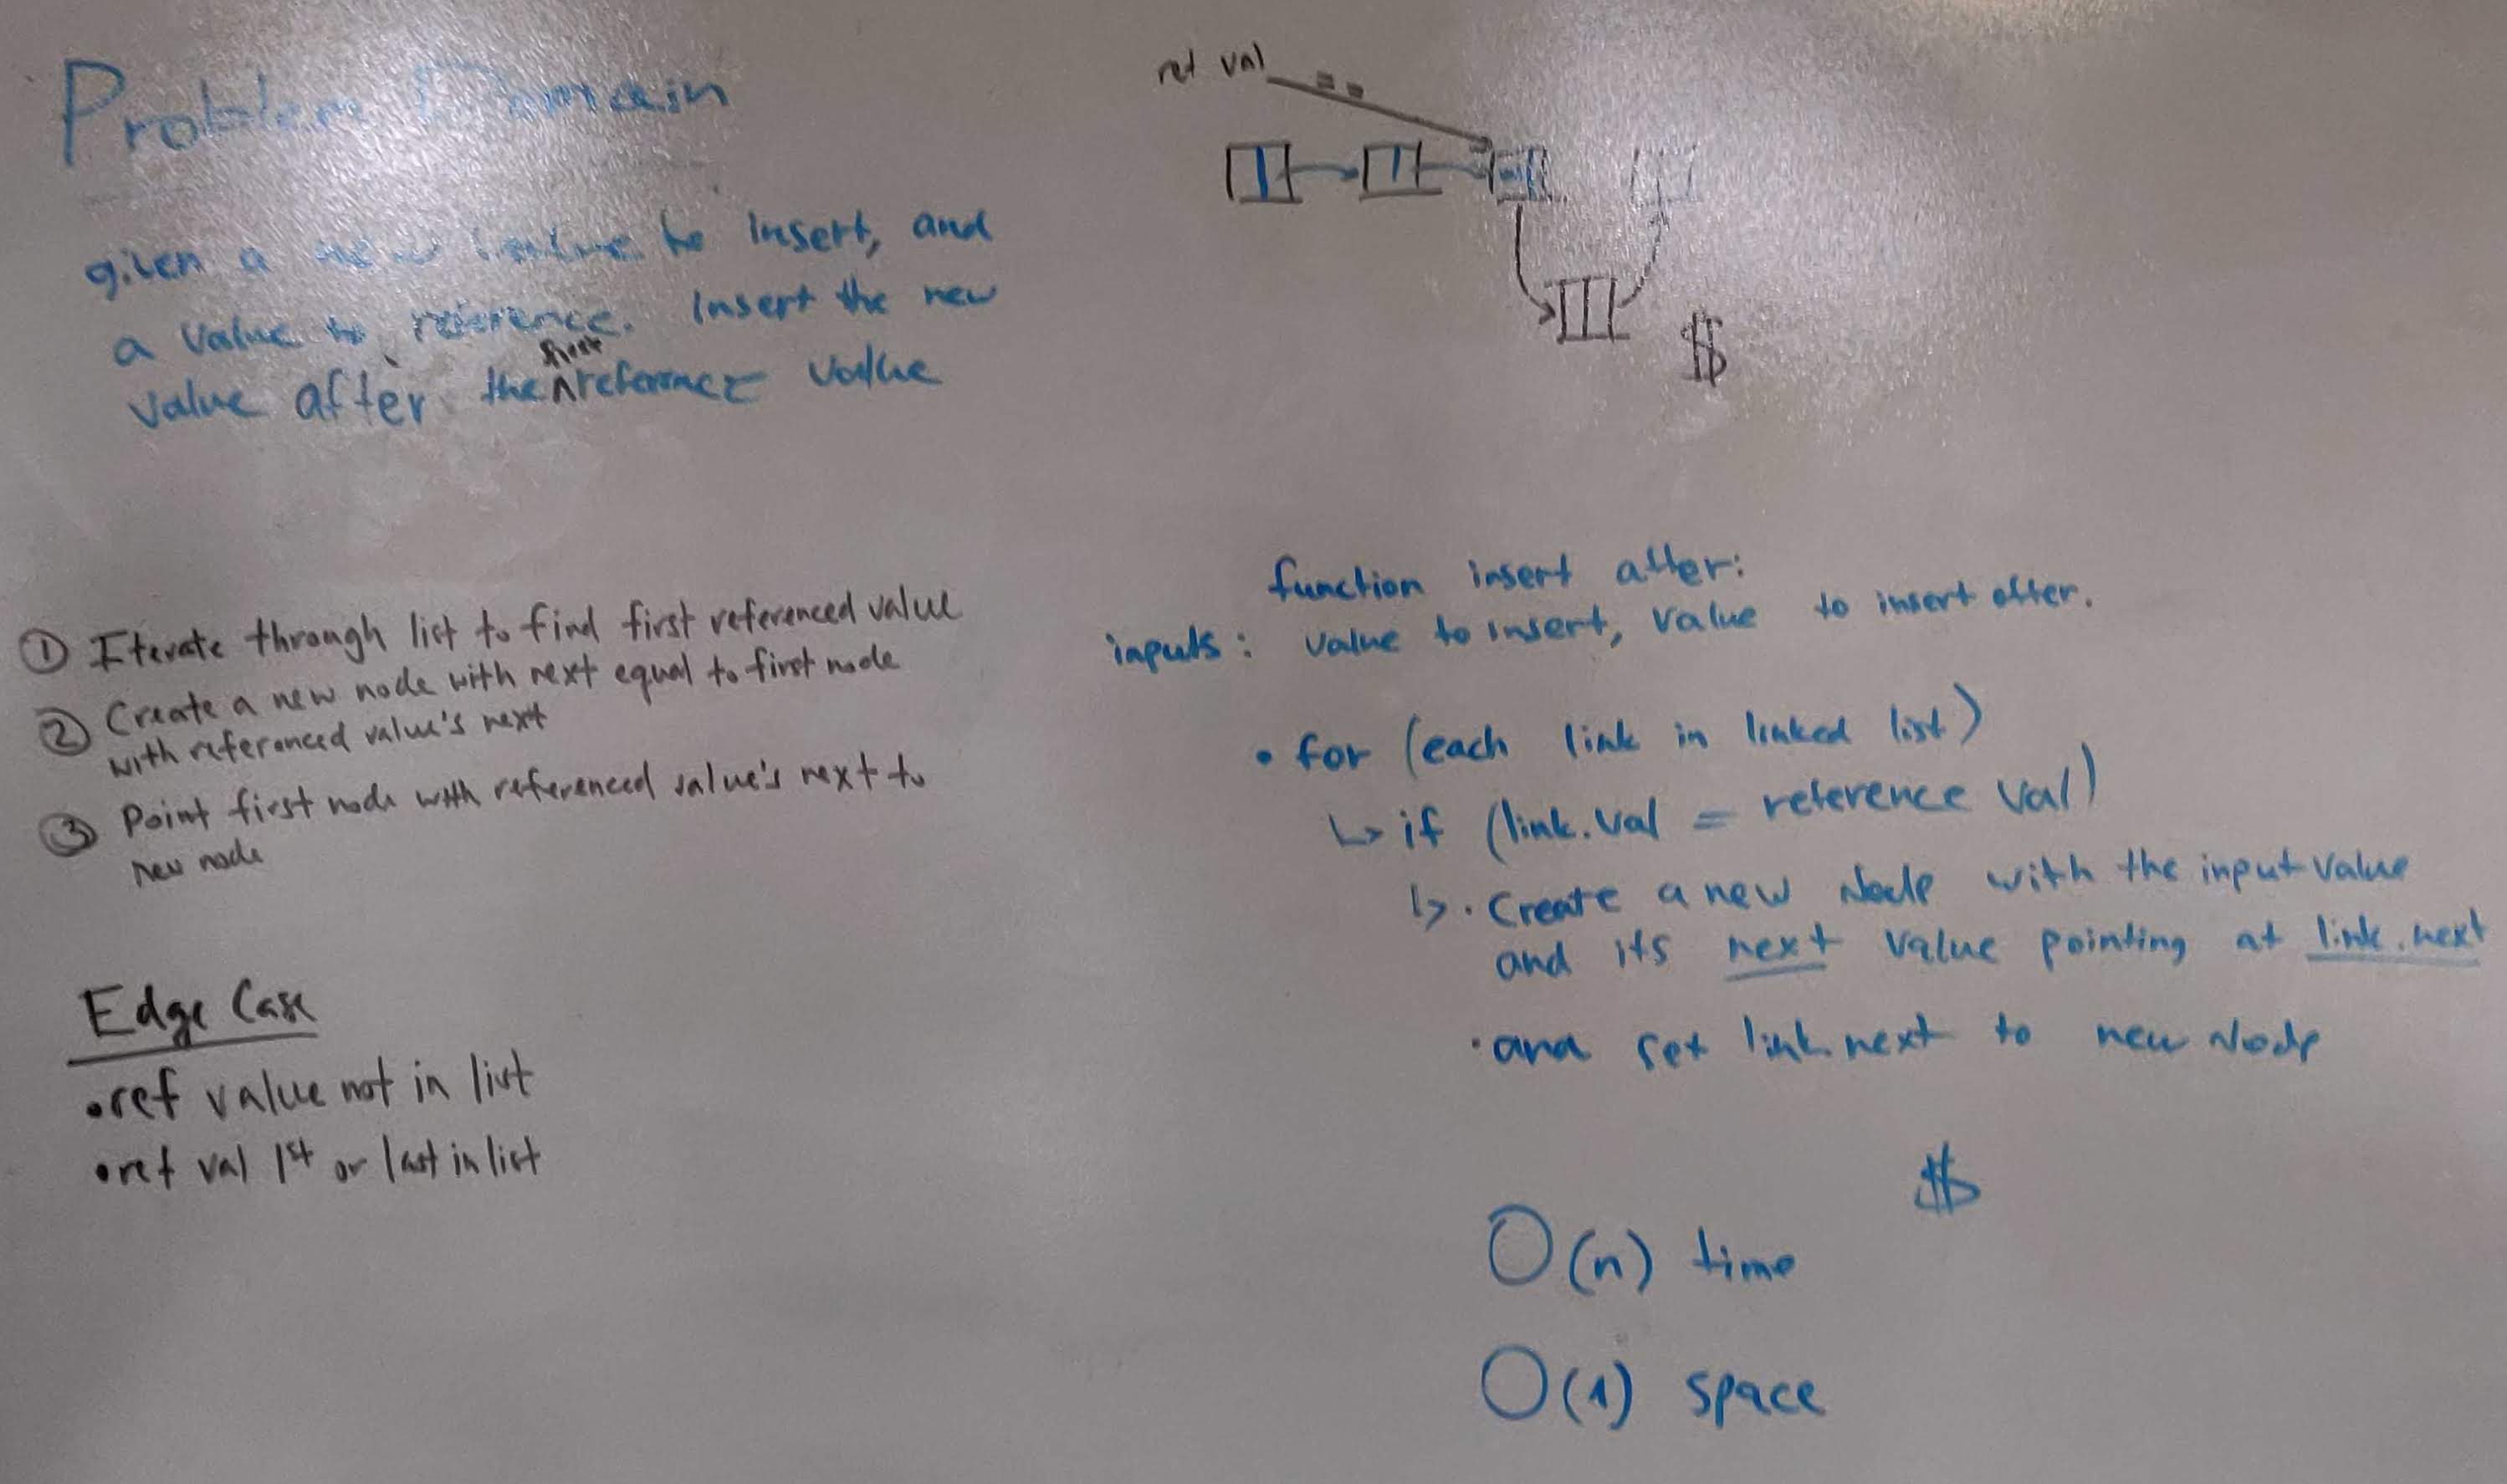 Problem Domain
given a new value to insert, and
a value to reference. Insert the new
first
value after the ^ reference value
ref val
==
$
① Iterate through list to find first referenced value
② Create a new node with next equal to first node
with referenced value's next
③ Point first node with referenced value's next to
new node
Edge Case
• ref value not in list
• ref val 1st or last in list
function insert after:
inputs: value to insert, value to insert after.
• for (each link in linked list)
↳ if (link.val = reference val)
↳ • Create a new Node with the input value
and its next value pointing at link.next
• and set link.next to new Node
$
O(n) time
O(1) space